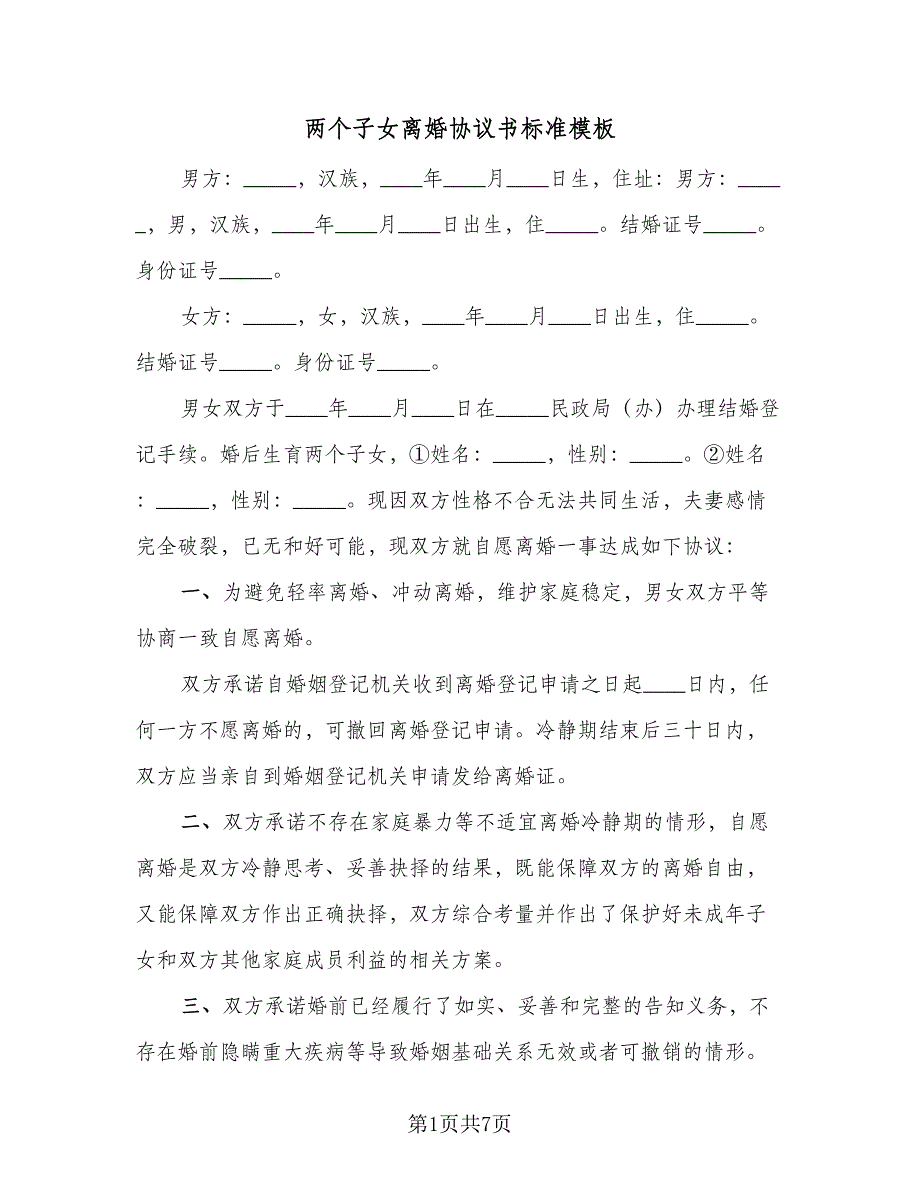 两个子女离婚协议书标准模板
男方：_____，汉族，____年____月____日生，住址：男方：____
_，男，汉族，____年____月____日出生，住_____。结婚证号_____。
身份证号_____。
女方：_____，女，汉族，____年____月____日出生，住_____。
结婚证号_____。身份证号_____。
男女双方于____年____月____日在_____民政局（办）办理结婚登
记手续。婚后生育两个子女，①姓名：_____，性别：_____。②姓名
：_____，性别：_____。现因双方性格不合无法共同生活，夫妻感情
完全破裂，已无和好可能，现双方就自愿离婚一事达成如下协议：
一、为避免轻率离婚、冲动离婚，维护家庭稳定，男女双方平等
协商一致自愿离婚。
双方承诺自婚姻登记机关收到离婚登记申请之日起____日内，任
何一方不愿离婚的，可撤回离婚登记申请。冷静期结束后三十日内，
双方应当亲自到婚姻登记机关申请发给离婚证。
二、双方承诺不存在家庭暴力等不适宜离婚冷静期的情形，自愿
离婚是双方冷静思考、妥善抉择的结果，既能保障双方的离婚自由，
又能保障双方作出正确抉择，双方综合考量并作出了保护好未成年子
女和双方其他家庭成员利益的相关方案。
三、双方承诺婚前已经履行了如实、妥善和完整的告知义务，不
存在婚前隐瞒重大疾病等导致婚姻基础关系无效或者可撤销的情形。
第1页共7页